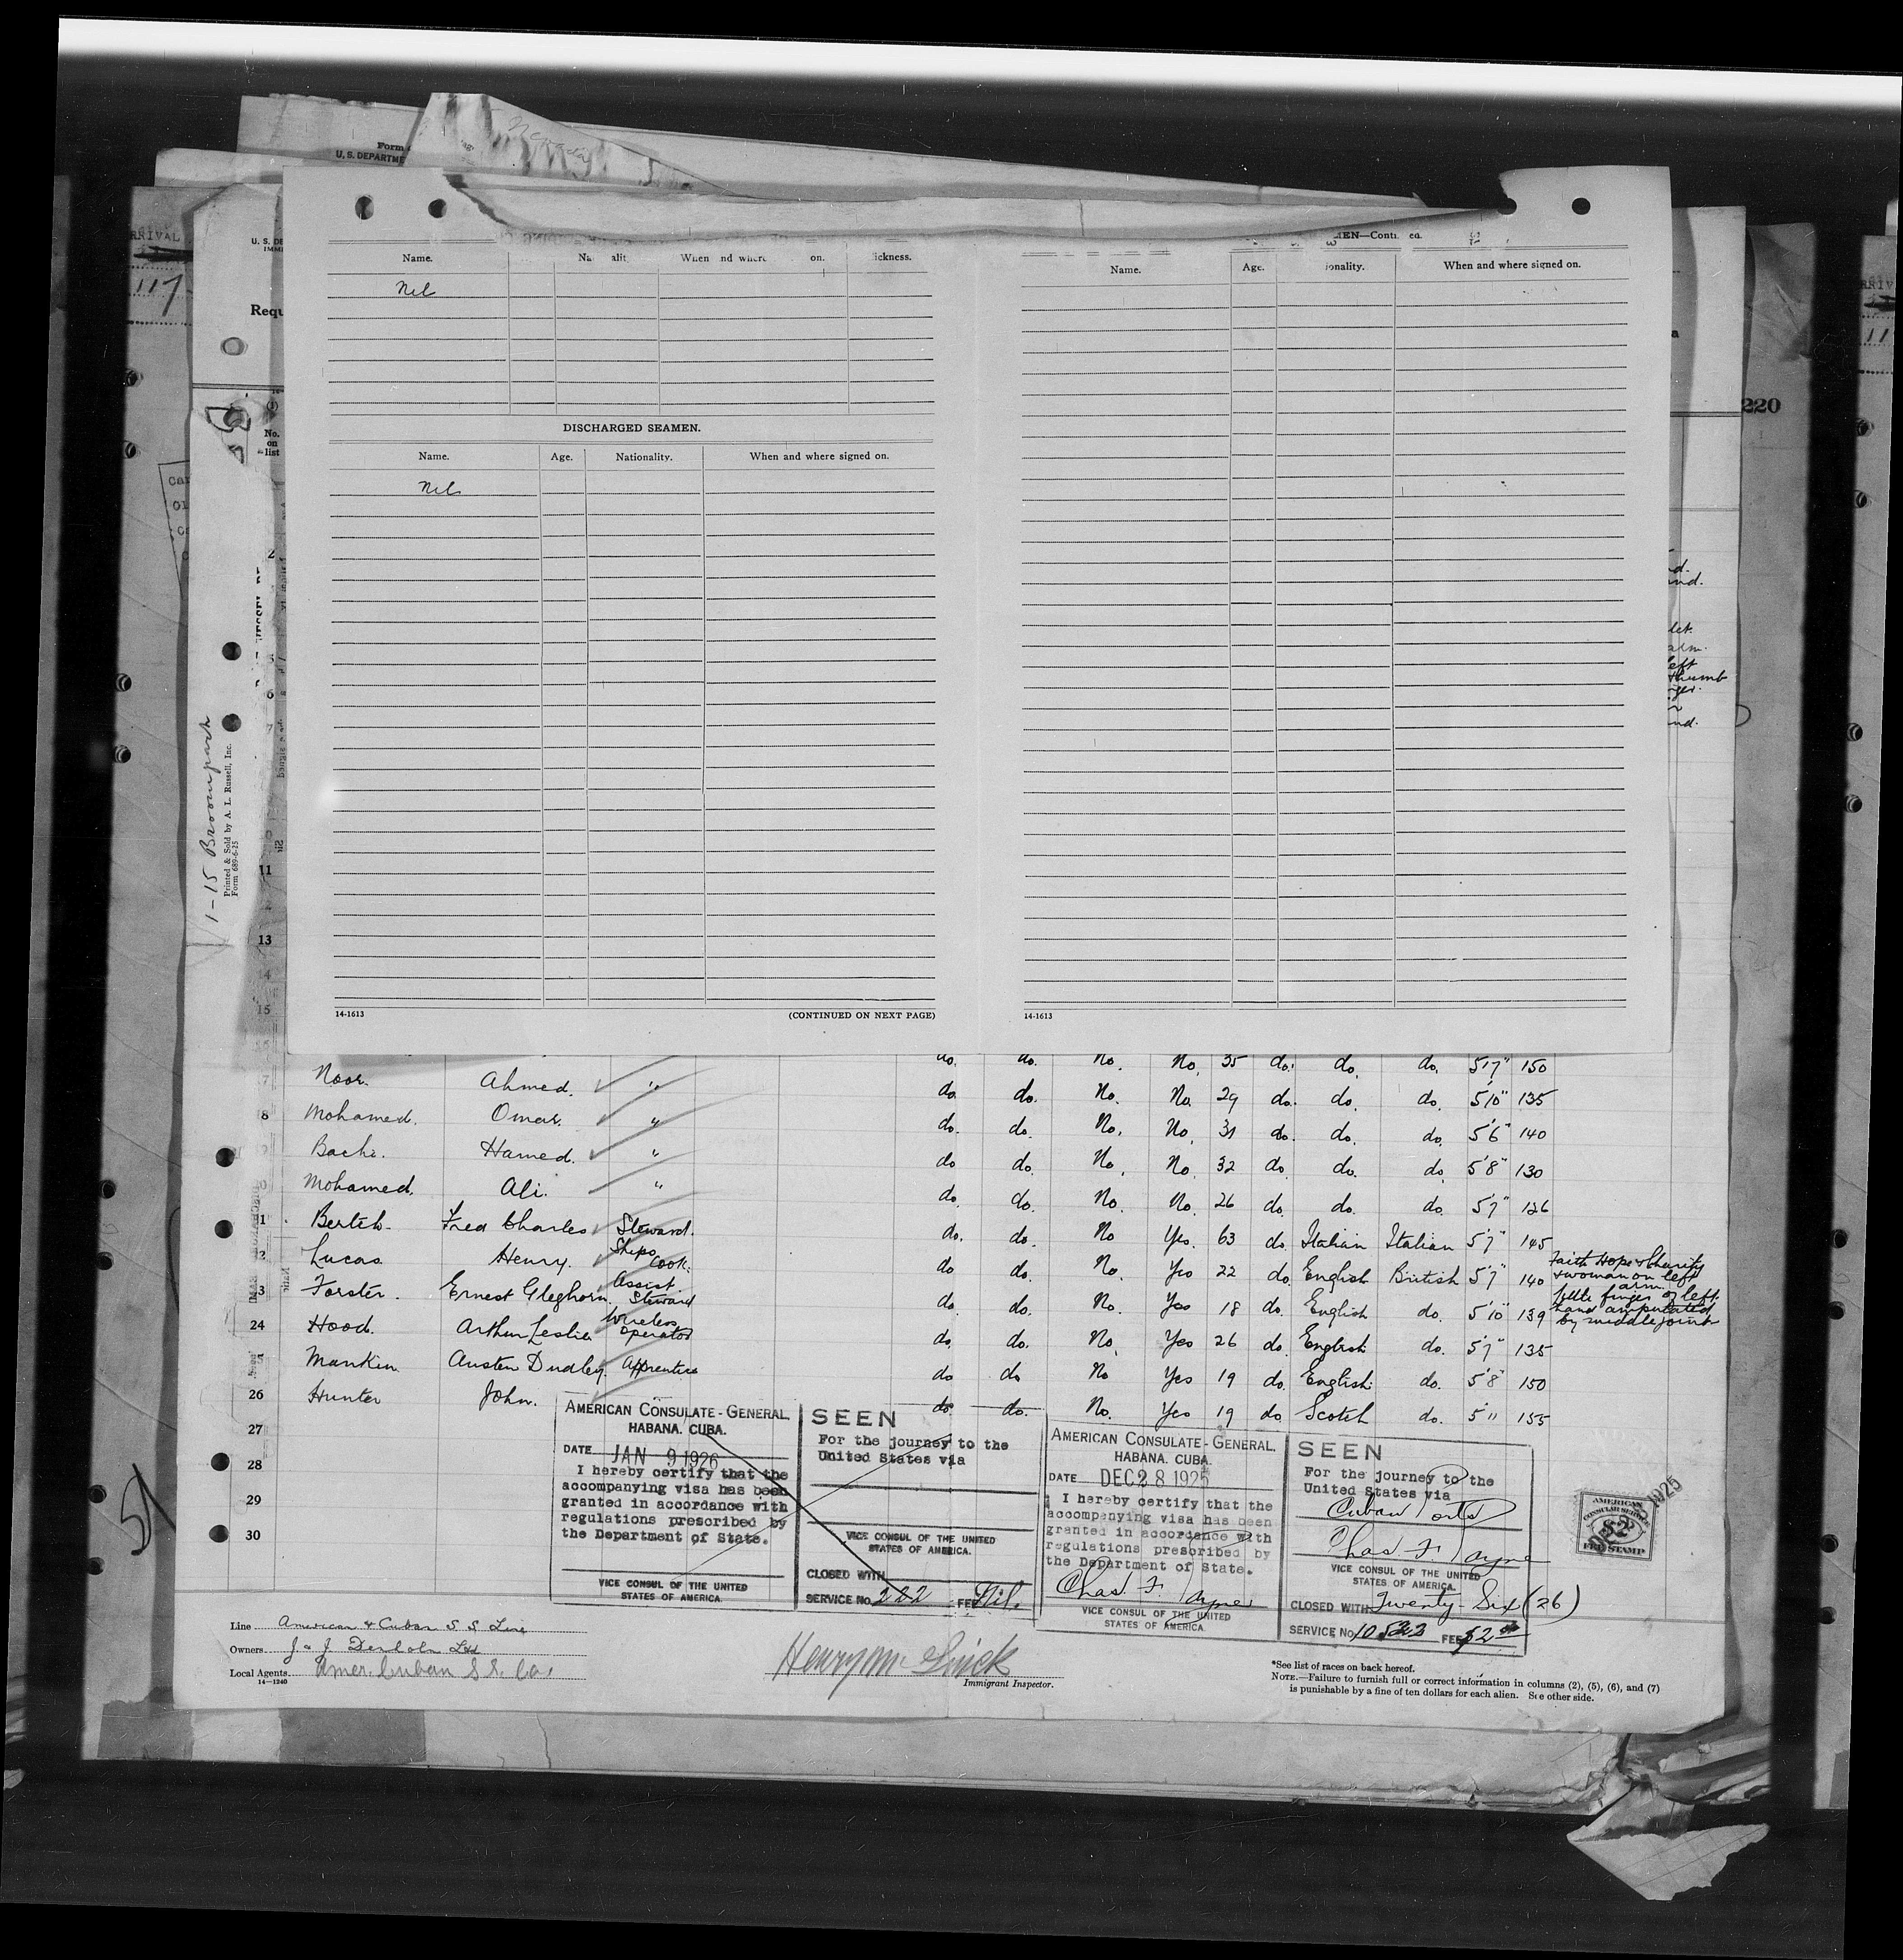 Form
U. S. DEPARTME
RRIVAL
117
U. S. DE
IMMI
Requ
No.
on
list
220
MEN—Conti ed.
Name.
When and where on.
ickness.
Nil
DISCHARGED SEAMEN.
Name. Age. Nationality. When and where signed on.
Nil
14-1613 (CONTINUED ON NEXT PAGE)
Name. Age. ionality. When and where signed on.
14-1613
1-15 Broompark
Printed & Sold by A. L. Russell, Inc.
Form 689-6-25
2
6
7
11
13
14
15
do. do. No. No. 35 do. do. do. 5'7" 150
7 Noor. Ahmed. " do. do. No. No. 29 do. do. do. 5'10" 135
8 Mohamed. Omar. " do. do. No. No. 31 do. do. do. 5'6" 140
Bachi. Hamed. " do do. No. No. 32 do do. do. 5'8" 130
Mohamed. Ali. " do. do. No. No. 26 do. do. do. 5'7" 126
1 Bertib. Fred Charles Steward. do. do. No Yes. 63 do. Italian Italian 5'7" 145
2 Lucas. Henry. Ships Cook. do do. No. Yes 22 do. English British 5'7" 140 Faith Hope & Charity & woman on left arm.
3 Forster. Ernest Gleghorn. Assist Steward do. do. No. Yes 18 do. English do. 5'10" 139 little finger of left hand amputated by middle joint
24 Hood. Arthur Leslie Wireless Operator do. do. No. Yes 26 do. English do. 5'7" 135
Mankin Austen Dudley. Apprentice do do No Yes 19 do. English do. 5'8" 150
26 Hunter John. do. do. No. Yes 19 do Scotch do. 5'11 155
27
28
29
30
AMERICAN CONSULATE-GENERAL.
HABANA. CUBA.
DATE JAN 9 1926
I hereby certify that the
accompanying visa has been
granted in accordance with
regulations prescribed by
the Department of State.
VICE CONSUL OF THE UNITED
STATES OF AMERICA.
SEEN
For the journey to the
United States via
VICE CONSUL OF THE UNITED
STATES OF AMERICA.
CLOSED WITH
SERVICE No. 222 FEE Nil.
AMERICAN CONSULATE-GENERAL.
HABANA. CUBA.
DATE DEC 28 1925
I hereby certify that the
accompanying visa has been
granted in accordance with
regulations prescribed by
the Department of State.
Chas F. Payne
VICE CONSUL OF THE UNITED
STATES OF AMERICA.
SEEN
For the journey to the
United States via
Cuban Ports
Chas F. Payne
VICE CONSUL OF THE UNITED
STATES OF AMERICA.
CLOSED WITH Twenty-Six (26)
SERVICE No. FEE $2.00
AMERICAN
CONSULAR SERVICE
$2
FEE STAMP
1925
Line American & Cuban S S Line
Owners J & J Denholm Ltd
Local Agents Amer. Cuban S.S. Co.
14—1240
Immigrant Inspector.
*See list of races on back hereof.
NOTE.—Failure to furnish full or correct information in columns (2), (5), (6), and (7)
is punishable by a fine of ten dollars for each alien. See other side.